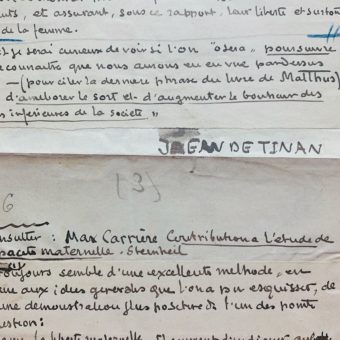 uts, et assurant, sous ce rapport, leur liberté et surtout
de la femme.
et je serai curieux de voir si l'on "osera" poursuivre
econnaître que nous avions eu en vue pardessus
— (pour citer la dernière phrase du livre de Malthus)
d'améliorer le sort et d'augmenter le bonheur des
s inférieures de la société"
JEAN DE TINAN
(3)
6
nsulter : Max Carrière Contribution a l'étude de
pacité maternelle - Steinheil
toujours semblé d'une excellente methode, en
ue aux idées generales que l'on a pu esquisser, de
une démonstration plus positive de l'un des points
estion:
la liberté maternelle